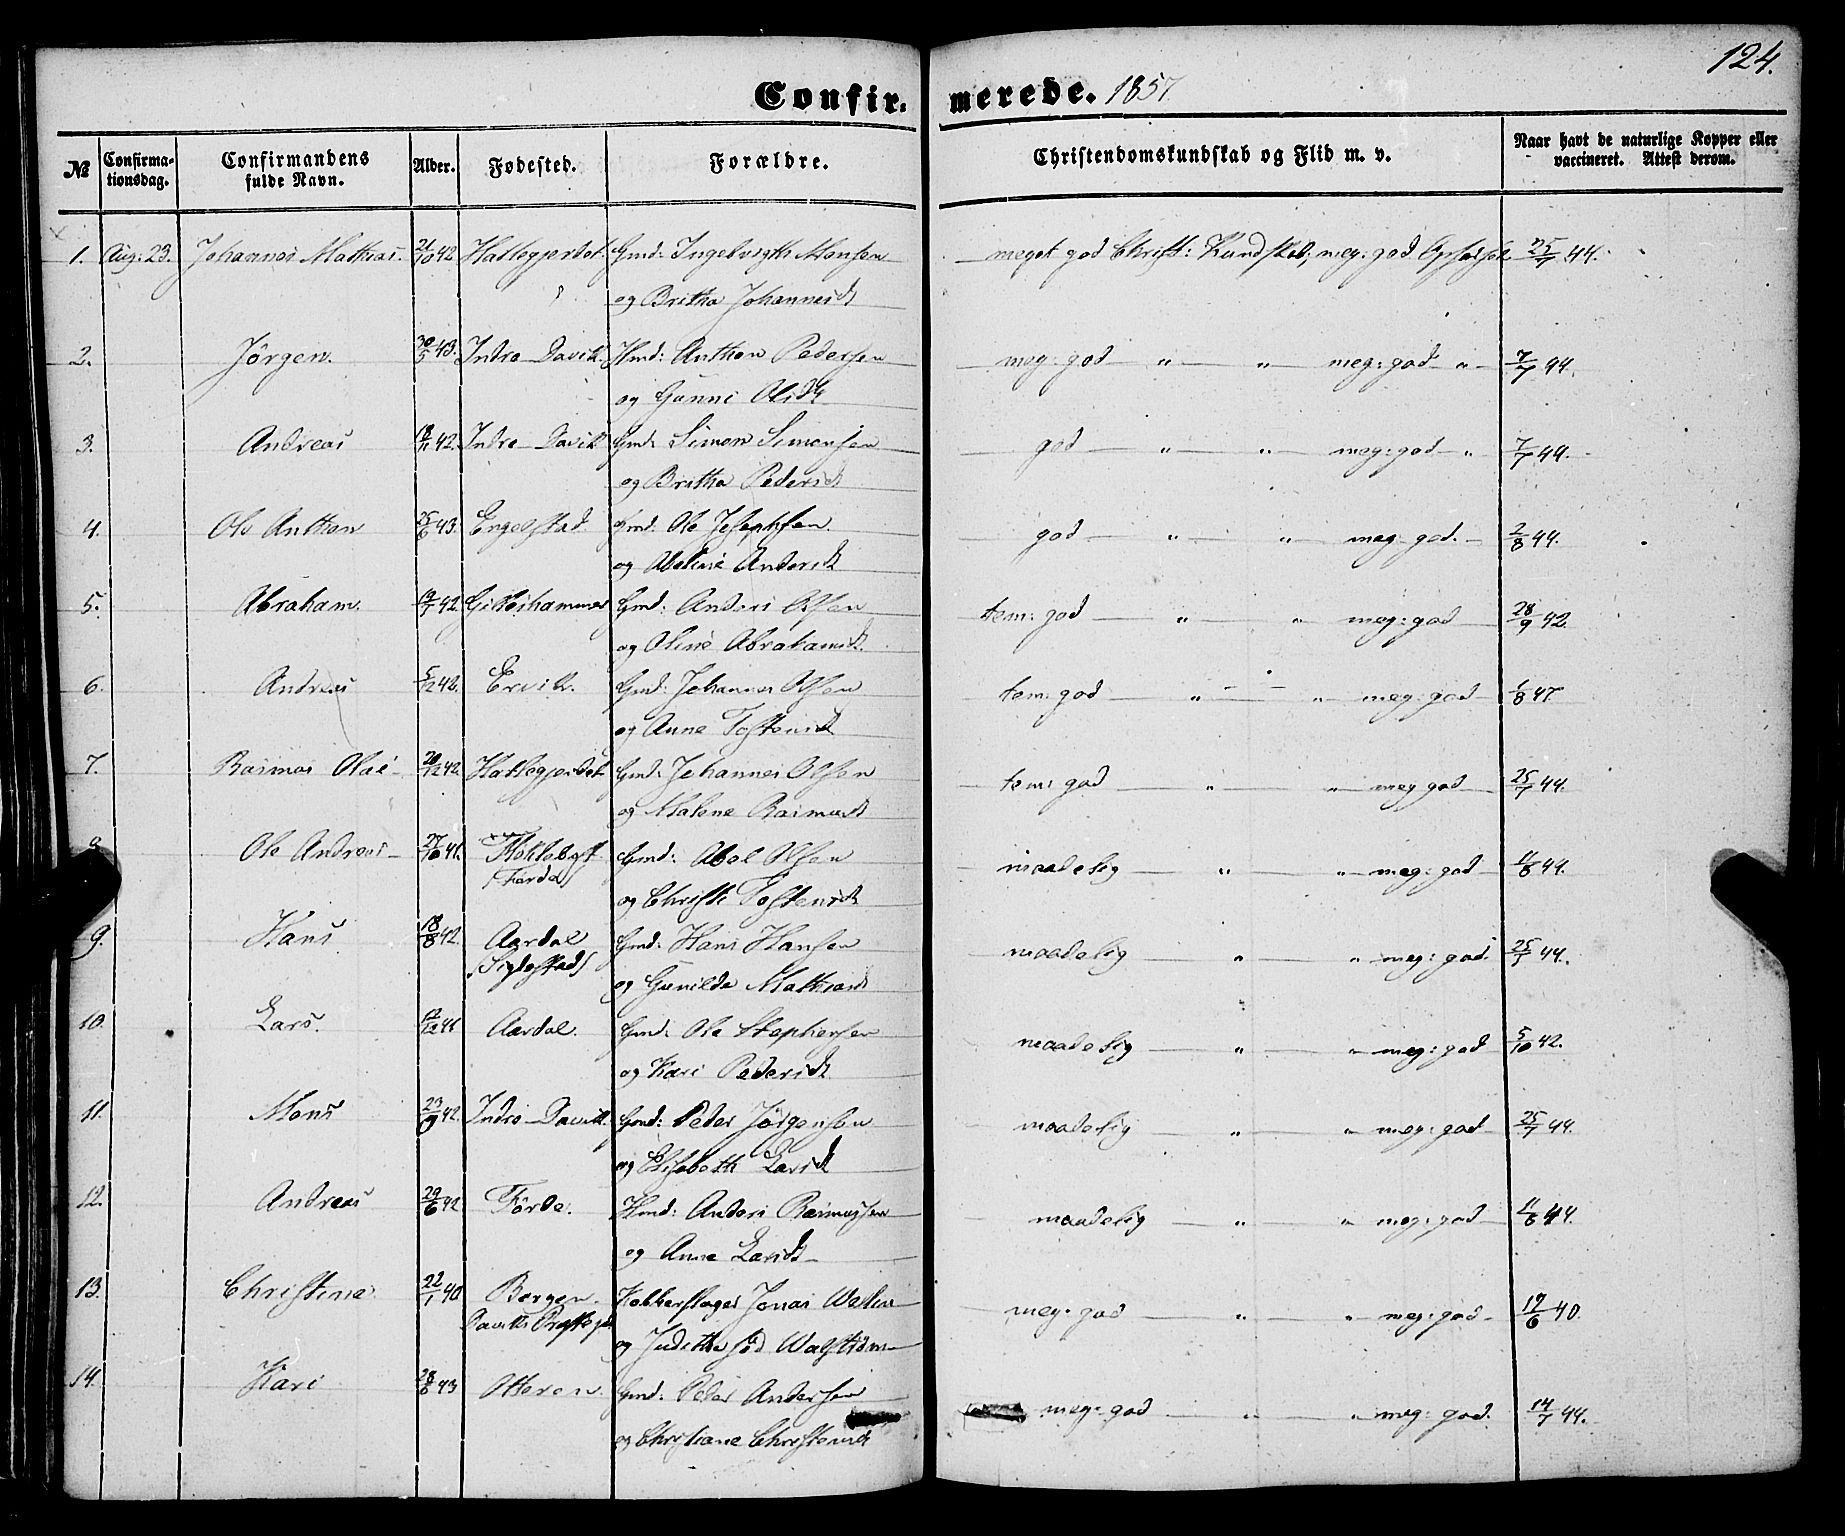 124.
Confir. merede. 1857.
№ Confirma- Confirmandens Alder. Fødested. Forældre. Christendomskundskab og Flid m. v. Naar havt de naturlige Kopper eller
tionsdag. fulde Navn. vaccineret. Attest derom.
1. Aug: 23. Johannes Mathias. 21/10 42 Hatlegjerdet Gmd: Ingebrigth Monsen meget god Christ: Kundskab, meg: god 25/7 44.
og Britha Johannesd
2. Jörgen. 30/5 43. Indre Davik Hmd: Anthon Pedersen meg: god " " meg: god " 7/7 44.
og Gunni Olsd
3. Andreas 18/11 42. Indre Davik Gmd: Simon Simonsen god " " meg: god " 7/7 44.
og Britha Pedersd
4. Ole Anthon 25/6 43. Engelstad Gmd: Ole Josephsen god " " meg: god. 2/8 44.
og Abeline Andersd
5. Abraham. 19/7 42 Gildeshammer Gmd: Anders Olsen tem: god " " meg: god 28/9 42
og Oline Abrahamsd.
6. Andreas 5/12 42. Ervik. Gmd: Johannes Olsen tem: god " " meg: god 1/8 47
og Anne Tostensd
7. Rasmus Olai 20/12 42. Hatlegjerdet Gmd: Johannes Olsen tem: god " " meg: god 25/7 44.
og Malene Rasmusd
8. Ole Andreas 27/10 41. Myklebust Gmd: Abel Olsen maadelig " " meg: god 11/8 44.
(Förde)
og Christi Tostensd
9. Hans 18/8 42. Aardal Gmd: Hans Hansen maadelig " " meg: god. 25/7 44.
(Sigdestad)
og Gunilde Mathiasd
10. Lars. 17/12 41 Aardal. Gmd: Ole Stephensen maadelig " " meg: god 5/10 42.
og Kari Pedersd.
11. Mons 23/9 42. Indre Davik. Gmd: Peder Jörgensen maadelig " " meg: god 25/7 44.
og Elisabeth Larsd
12. Andreas 29/6 42 Förde. Hmd: Anders Rasmussen maadelig " " meg: god 11/8 44.
og Anne Larsd
13. Christine 22/1 40. Bergen. Kobberslager Jonas meg: god " " meg: god 19/6 40.
Daviks
og Judithe fød
14. Kari 28/8 43 Otteren. Gmd: Peder Andersen meg: god " " meg: god. 14/7 44.
og Christiane Christensd